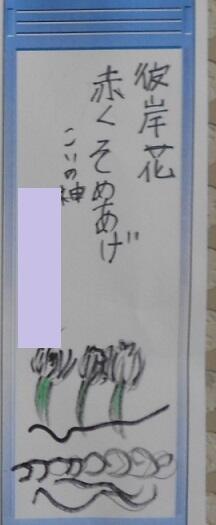 彼岸花
赤くそめあげ
こいの神